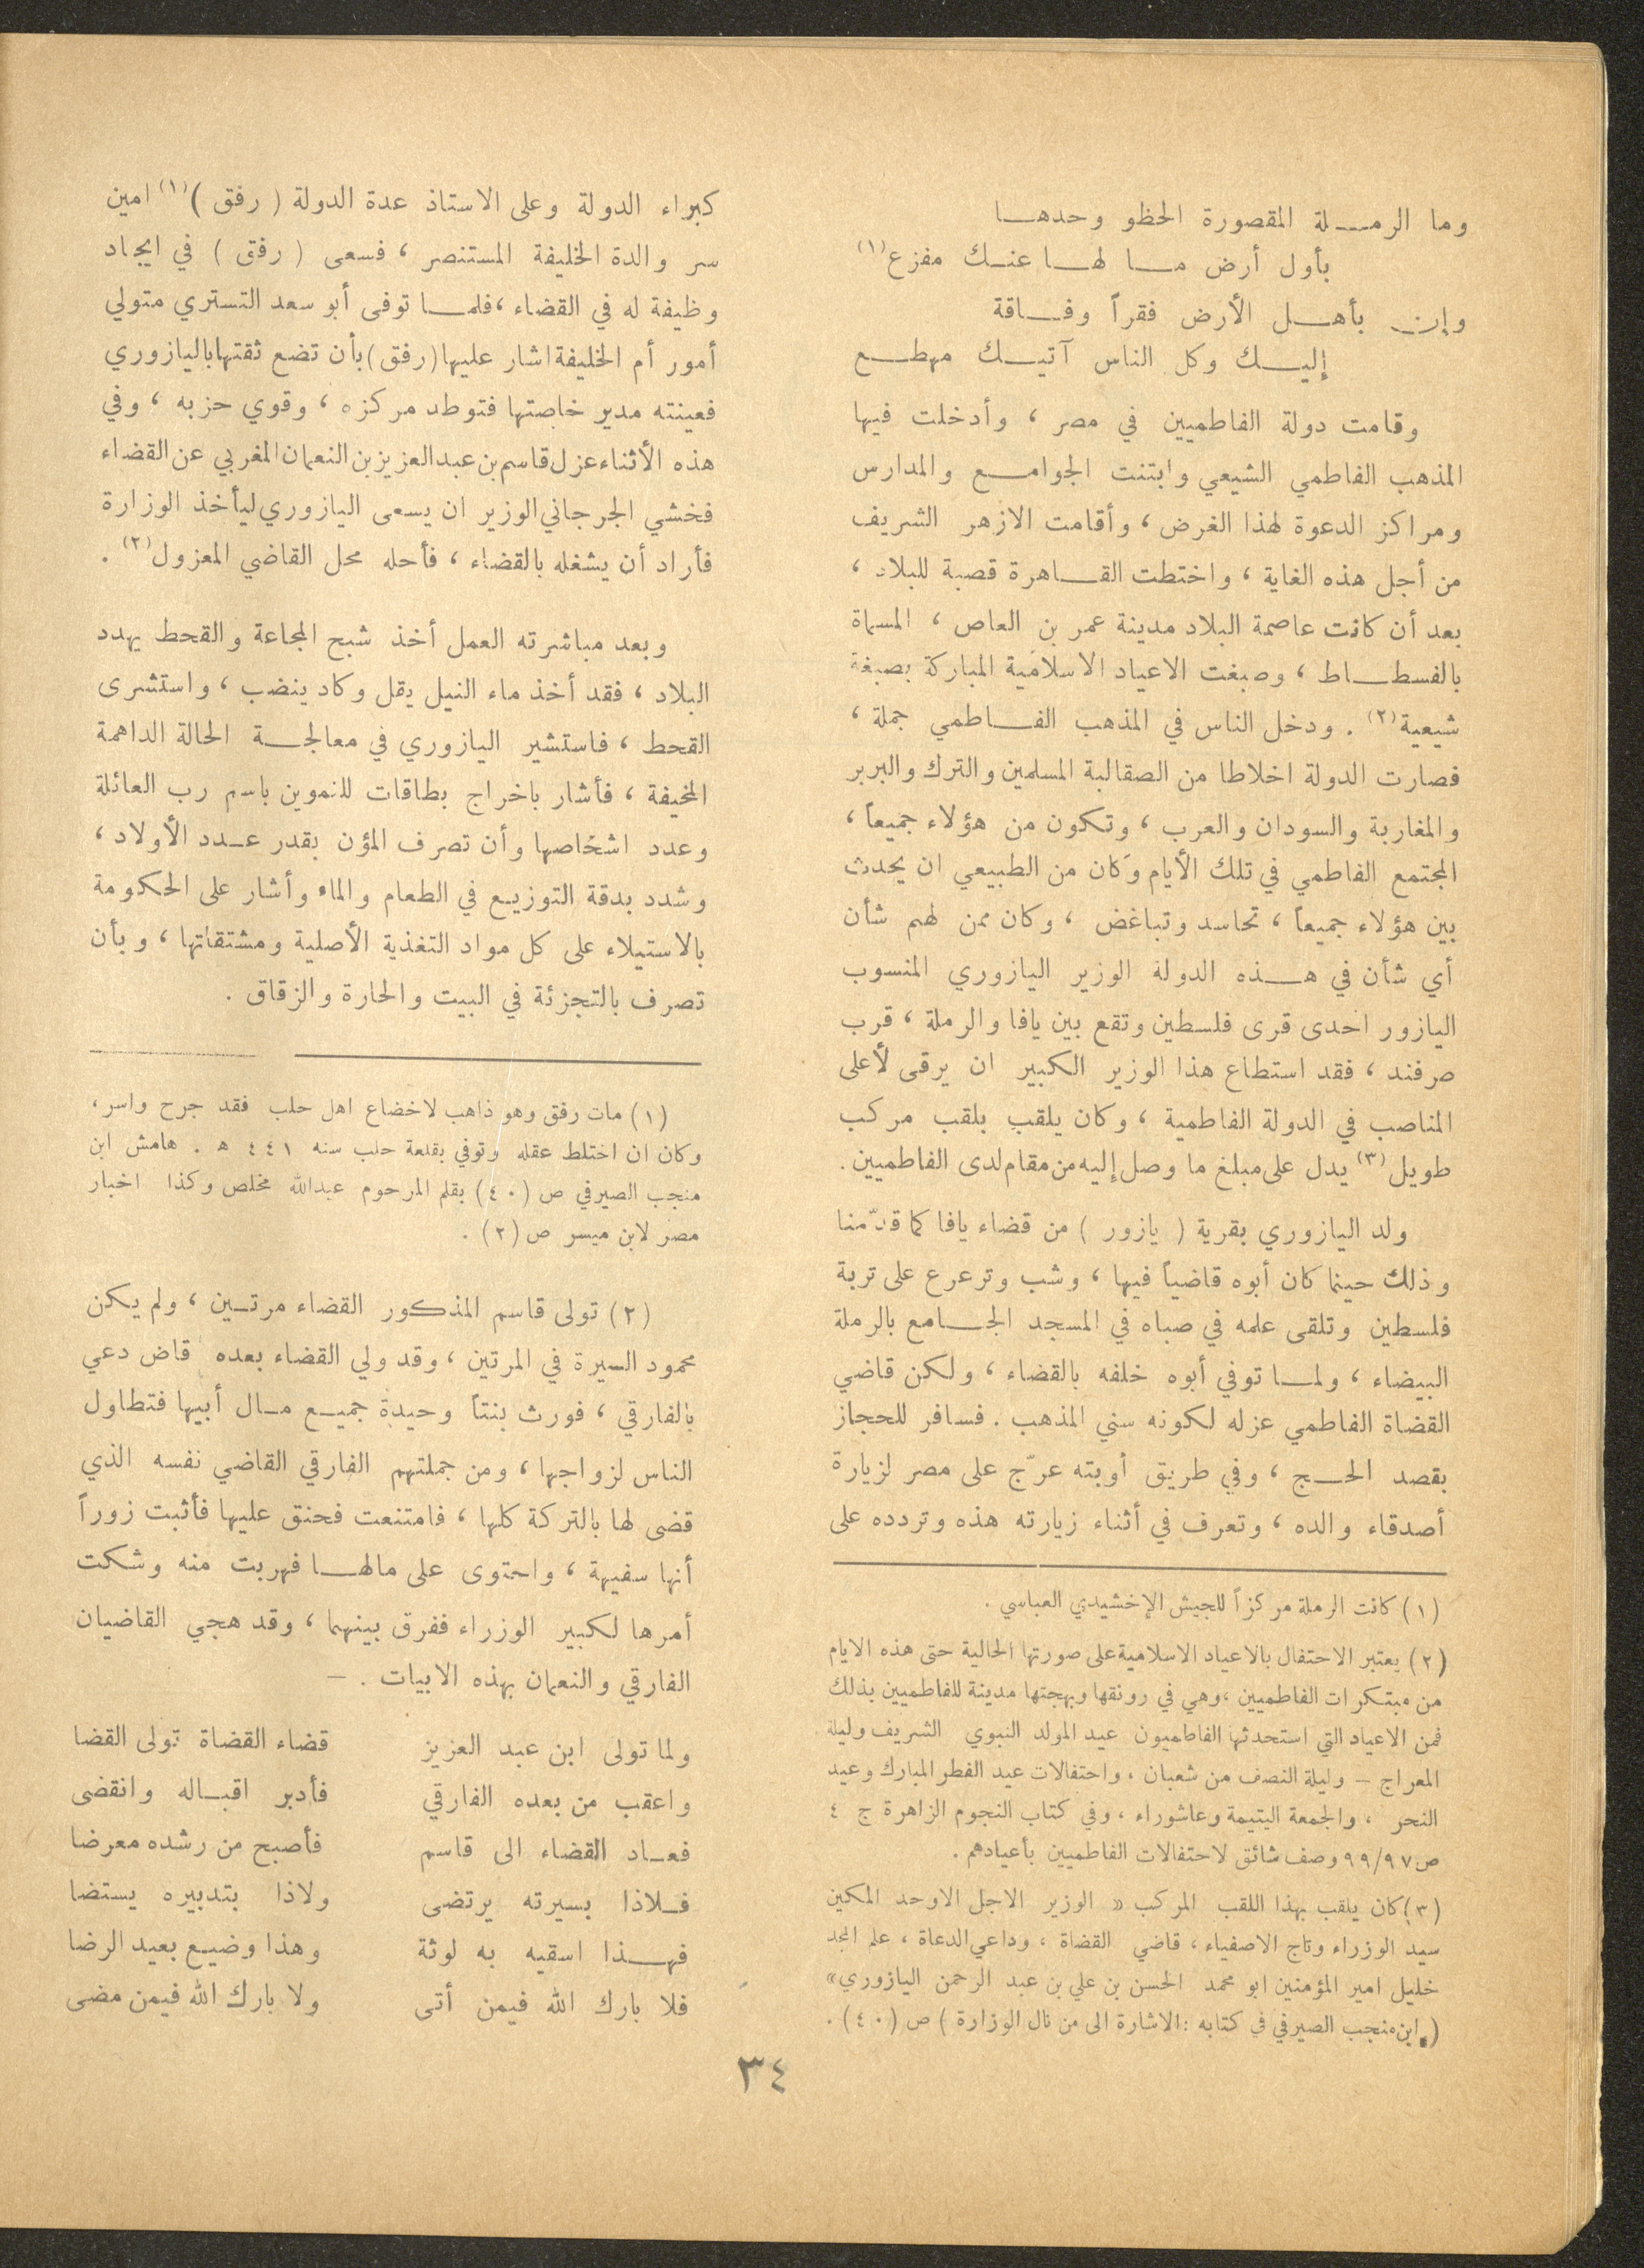 وما الرملة المقصورة الحظو وحدها
بأول أرض ما لها عنك مفزع (١)
وإن بأهل الأرض فقراً وفاقة
إليك وكل الناس آتيك مهطع
وقامت دولة الفاطميين في مصر ، وأدخلت فيها
المذهب الفاطمي الشيعي وابتنت الجوامع والمدارس
ومراكز الدعوة لهذا الغرض ، وأقامت الازهر الشريف
من أجل هذه الغاية ، واختطت القاهرة قصبة للبلاد ،
بعد أن كانت عاصمة البلاد مدينة عمر بن العاص ، المسماة
بالفسطاط ، وصبغت الاعياد الاسلامية المباركة بصبغة
شيعية (٢) . ودخل الناس في المذهب الفاطمي جملة ،
فصارت الدولة اخلاطا من الصقالبة المسلمين والترك والبربر
والمغاربة والسودان والعرب ، وتكون من هؤلاء جميعاً ،
المجتمع الفاطمي في تلك الأيام وكان من الطبيعي ان يحدث
بين هؤلاء جميعاً ، تحاسد وتباغض ، وكان ممن لهم شأن
أي شأن في هذه الدولة الوزير اليازوري المنسوب
اليازور احدى قرى فلسطين وتقع بين يافا والرملة ، قرب
صرفند ، فقد استطاع هذا الوزير الكبير ان يرقى لأعلى
المناصب في الدولة الفاطمية ، وكان يلقب بلقب مركب
طويل (٣) يدل على مبلغ ما وصل إليه من مقام لدى الفاطميين .
ولد اليازوري بقرية ( يازور ) من قضاء يافا كما قدّمنا
وذلك حينما كان أبوه قاضياً فيها ، وشب وترعرع على تربة
فلسطين وتلقى علمه في صباه في المسجد الجامع بالرملة
البيضاء ، ولما توفي أبوه خلفه بالقضاء ، ولكن قاضي
القضاة الفاطمي عزله لكونه سني المذهب . فسافر للحجاز
بقصد الحج ، وفي طريق أوبته عرّج على مصر لزيارة
أصدقاء والده ، وتعرف في أثناء زيارته هذه وتردده على
(١) كانت الرملة مركزاً للجيش الإخشيدي العباسي .
(٢) يعتبر الاحتفال بالاعياد الاسلامية على صورتها الحالية حتى هذه الايام
من مبتكرات الفاطميين ، وهي في رونقها وبهجتها مدينة للفاطميين بذلك
فمن الاعياد التي استحدثها الفاطميون عيد المولد النبوي الشريف وليلة
المعراج – وليلة النصف من شعبان ، واحتفالات عيد الفطر المبارك وعيد
النحر ، والجمعة اليتيمة وعاشوراء ، وفي كتاب النجوم الزاهرة ج ٤
ص ٩٩/٩٧ وصف شائق لاحتفالات الفاطميين بأعيادهم .
(٣) كان يلقب بهذا اللقب المركب « الوزير الاجل الاوحد المكين
سيد الوزراء وتاج الاصفياء ، قاضي القضاة ، وداعي الدعاة ، علم المجد
خليل امير المؤمنين ابو محمد الحسن بن علي بن عبد الرحمن اليازوري »
( ابن منجب الصيرفي في كتابه : الاشارة الى من نال الوزارة ) ص (٤٠) .
كبراء الدولة وعلى الاستاذ عدة الدولة ( رفق ) (١) امين
سر والدة الخليفة المستنصر ، فسعى ( رفق ) في ايجاد
وظيفة له في القضاء ، فلما توفى أبو سعد التستري متولي
أمور أم الخليفة اشار عليها ( رفق ) بأن تضع ثقتها باليازوري
فعينته مدير خاصتها فتوطد مركزه ، وقوي حزبه ، وفي
هذه الأثناء عزل قاسم بن عبد العزيز بن النعمان المغربي عن القضاء
فخشي الجرجاني الوزير ان يسعى اليازوري ليأخذ الوزارة
فأراد أن يشغله بالقضاء ، فأحله محل القاضي المعزول (٢) .
وبعد مباشرته العمل أخذ شبح المجاعة والقحط يهدد
البلاد ، فقد أخذ ماء النيل يقل وكاد ينضب ، واستشرى
القحط ، فاستشير اليازوري في معالجة الحالة الداهمة
المخيفة ، فأشار باخراج بطاقات للتموين باسم رب العائلة
وعدد اشخاصها وأن تصرف المؤن بقدر عدد الأولاد ،
وشدد بدقة التوزيع في الطعام والماء وأشار على الحكومة
بالاستيلاء على كل مواد التغذية الأصلية ومشتقاتها ، وبأن
تصرف بالتجزئة في البيت والحارة والزقاق .
(١) مات رفق وهو ذاهب لاخضاع اهل حلب فقد جرح واسر ،
وكان ان اختلط عقله وتوفي بقلعة حلب سنه ٤٤١ ه . هامش ابن
منجب الصيرفي ص (٤٠) بقلم المرحوم عبدالله مخلص وكذا اخبار
مصر لابن ميسر ص (٢) .
(٢) تولى قاسم المذكور القضاء مرتين ، ولم يكن
محمود السيرة في المرتين ، وقد ولي القضاء بعده قاض دعي
بالفارقي ، فورث بنتاً وحيدة جميع مال أبيها فتطاول
الناس لزواجها ، ومن جملتهم الفارقي القاضي نفسه الذي
قضى لها بالتركة كلها ، فامتنعت فحنق عليها فأثبت زوراً
أنها سفيهة ، واحتوى على مالها فهربت منه وشكت
أمرها لكبير الوزراء ففرق بينهما ، وقد هجي القاضيان
الفارقي والنعمان بهذه الابيات . –
ولما تولى ابن عبد العزيز قضاء القضاة تولى القضا
واعقب من بعده الفارقي فأدبر اقباله وانقضى
فعاد القضاء الى قاسم فأصبح من رشده معرضا
فلاذا بسيرته يرتضى ولاذا بتدبيره يستضا
فهذا اسقيه به لوثة وهذا وضيع بعيد الرضا
فلا بارك الله فيمن أتى ولا بارك الله فيمن مضى
٣٤